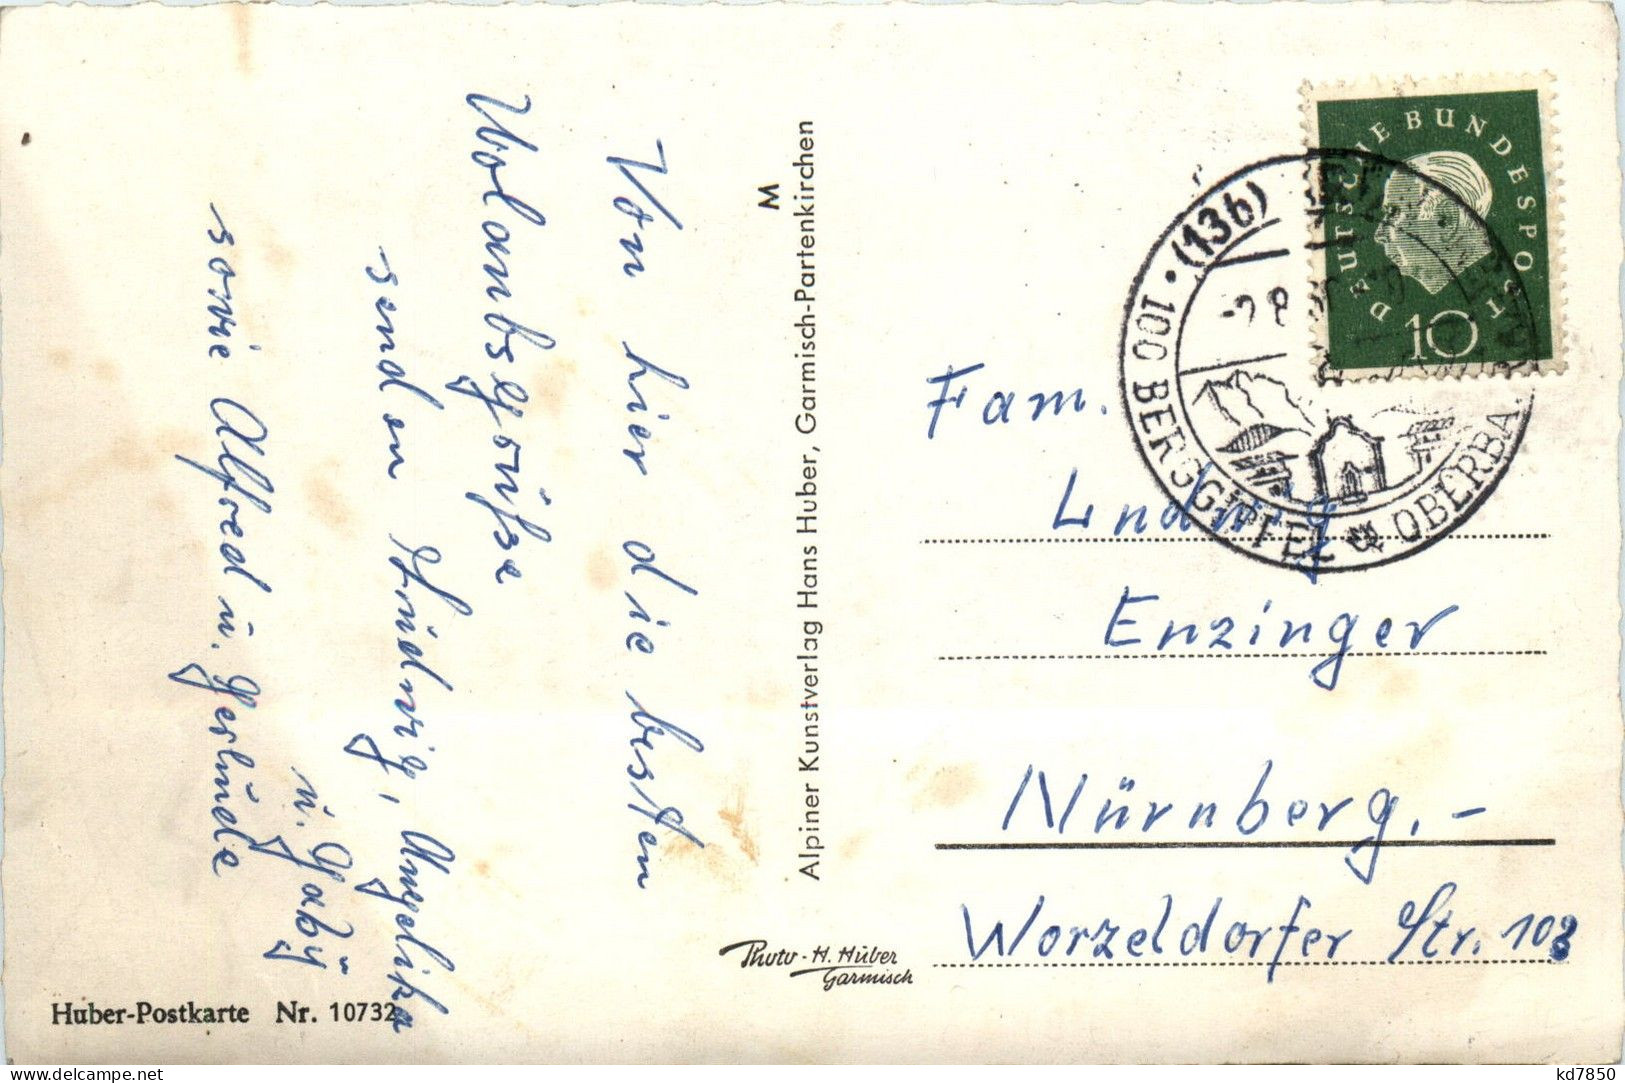 Von hier die besten
Urlaubsgrüße
senden Ludwig, Angelika
u. Gaby
sowie Alfred u. Gerlinde
M
Alpiner Kunstverlag Hans Huber, Garmisch-Partenkirchen
Photo - H. Huber
Garmisch
Huber-Postkarte Nr. 10732
DEUTSCHE BUNDESPOST
10
(13b)
100 BERGGIPFEL
OBERBA
Fam.
Ludwig
Enzinger
Nürnberg.-
Worzeldorfer Str. 103
delcampe.net
kd7850